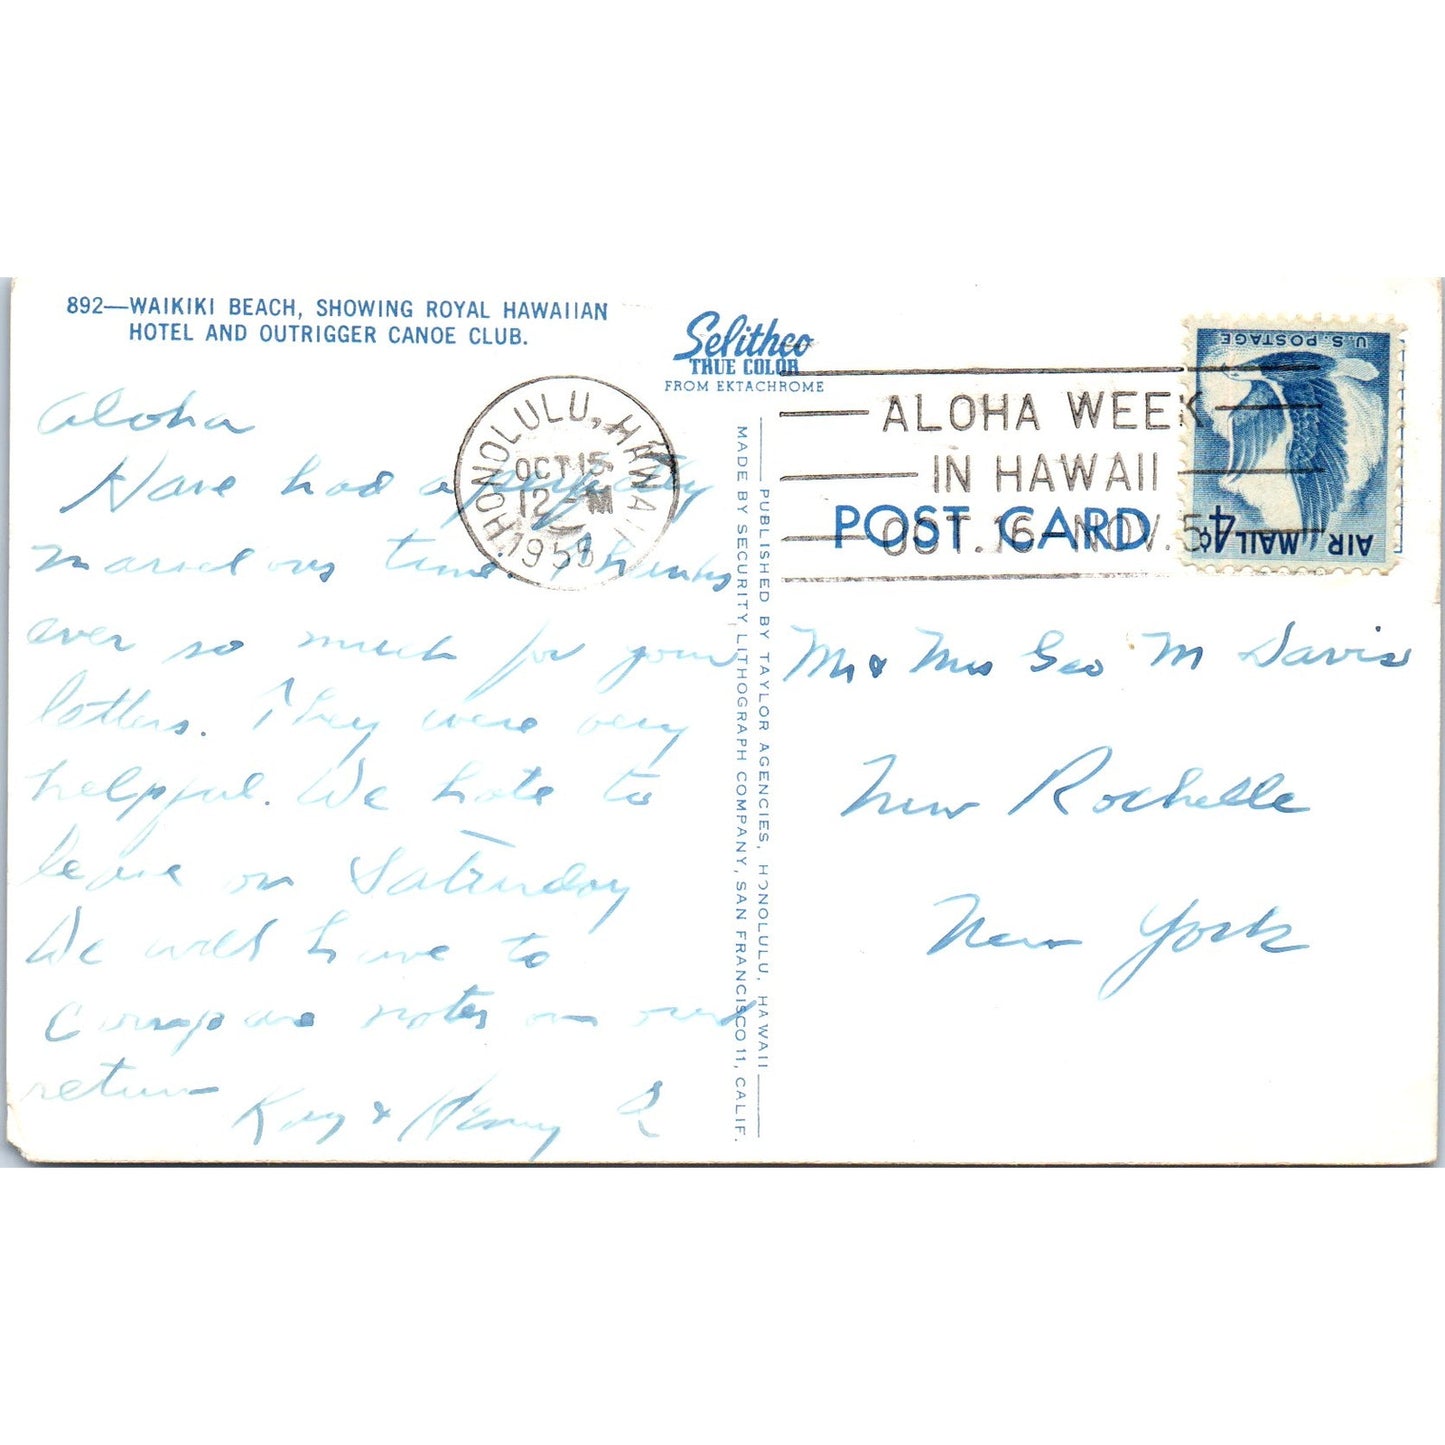 892—WAIKIKI BEACH, SHOWING ROYAL HAWAIIAN
HOTEL AND OUTRIGGER CANOE CLUB.
Selithco
TRUE COLOR
FROM EKTACHROME
Aloha
Have had a perfectly
marvelous time. Thanks
ever so much for your
letters. They were very
helpful. We hate to
leave on Saturday
We will have to
compare notes on our
return
& Henry
HONOLULU, HAWAII
OCT 15
12 - M
1955
ALOHA WEEK
IN HAWAII
OCT. 16 - NOV. 5
POST CARD
U.S. POSTAGE
4¢ AIR MAIL
PUBLISHED BY TAYLOR AGENCIES, HONOLULU, HAWAII
MADE BY SECURITY LITHOGRAPH COMPANY, SAN FRANCISCO 11, CALIF.
Mr & Mrs Geo M Davis
New Rochelle
New York